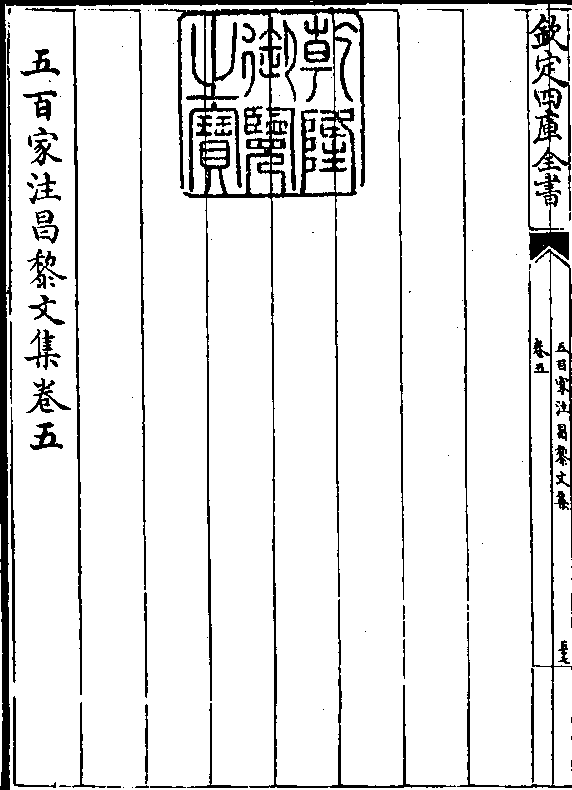 欽定四庫全書
五百家注昌黎文集
卷五
乾隆
御覽
之寶
五百家注昌黎文集卷五